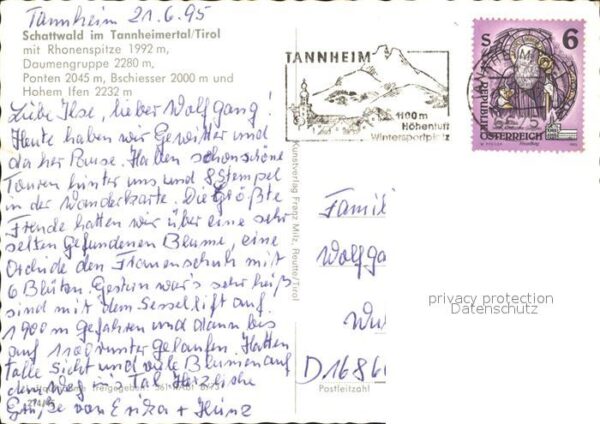 Tannheim 21.6.95
Schattwald im Tannheimertal/Tirol
mit Rhonenspitze 1992 m,
Daumengruppe 2280 m,
Ponten 2045 m, Bschiesser 2000 m und
Hohem Ifen 2232 m
Liebe Ilse, lieber Wolfgang!
Heute haben wir Gewitter und
daher Pause. Haben schon schöne
Touren hinter uns und 8 Stempel
in der Wanderkarte. Die größte
Freude hatten wir über eine sehr
selten gefundenen Blume, eine
Orchide den Frauenschuh mit
6 Blüten. Gestern war's sehr heiß
sind mit dem Sessellift auf
1900 m gefahren und dann bis
auf 1100 runter gelaufen. Hatten
tolle Sicht und viele Blumen auf
dem Weg ins Tal. Herzliche
Grüße von Erika + Heinz
Kunstverlag Franz Milz, Reutte/Tirol
TANNHEIM
1100 m
Höhenluft
Wintersportplatz
S 6
REPUBLIK
ÖSTERREICH
Famili
Wolfga
D 1686
Postleitzahl
privacy protection
Datenschutz